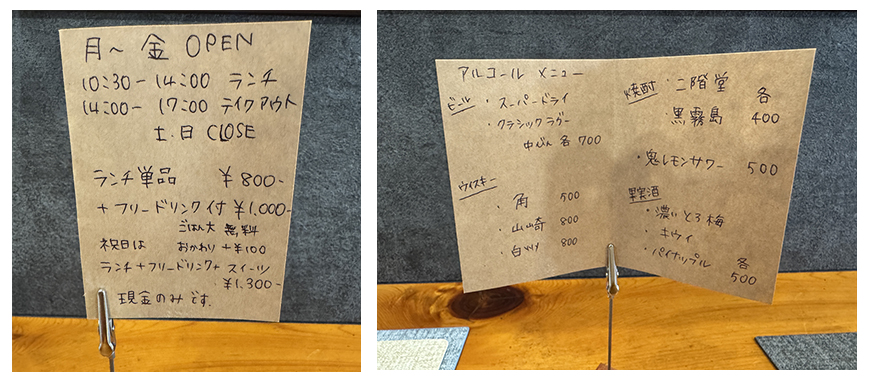 月〜金 OPEN
10:30-14:00 ランチ
14:00-17:00 テイクアウト
土.日 CLOSE
ランチ単品 ¥800-
+フリードリンク付 ¥1,000-
ごはん大 無料
祝日は おかわり +¥100
ランチ+フリードリンク+スイーツ
¥1,300-
現金のみです.
アルコール メニュー
ビール ・スーパードライ
・クラシックラガー
中びん 各 700
ウイスキー
・角 500
・山崎 800
・白州 800
焼酎 ・二階堂
・黒霧島 各 400
・鬼レモンサワー 500
果実酒
・濃いとろ梅
・キウイ
・パイナップル 各 500